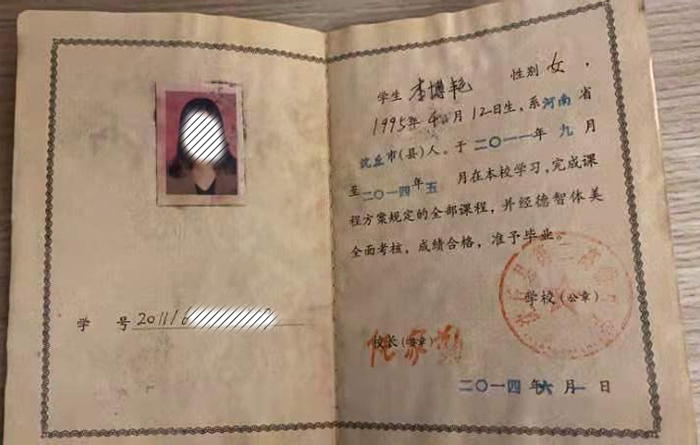 学 号 201116
学生 李博艳 性别 女，
1995年4月12日生，系河南省
沈丘市(县)人。于二〇一一年九月
至二〇一四年五月在本校学习，完成课
程方案规定的全部课程，并经德智体美
全面考核，成绩合格，准予毕业。
学校(公章)
校长(签章)
二〇一四年六月一日